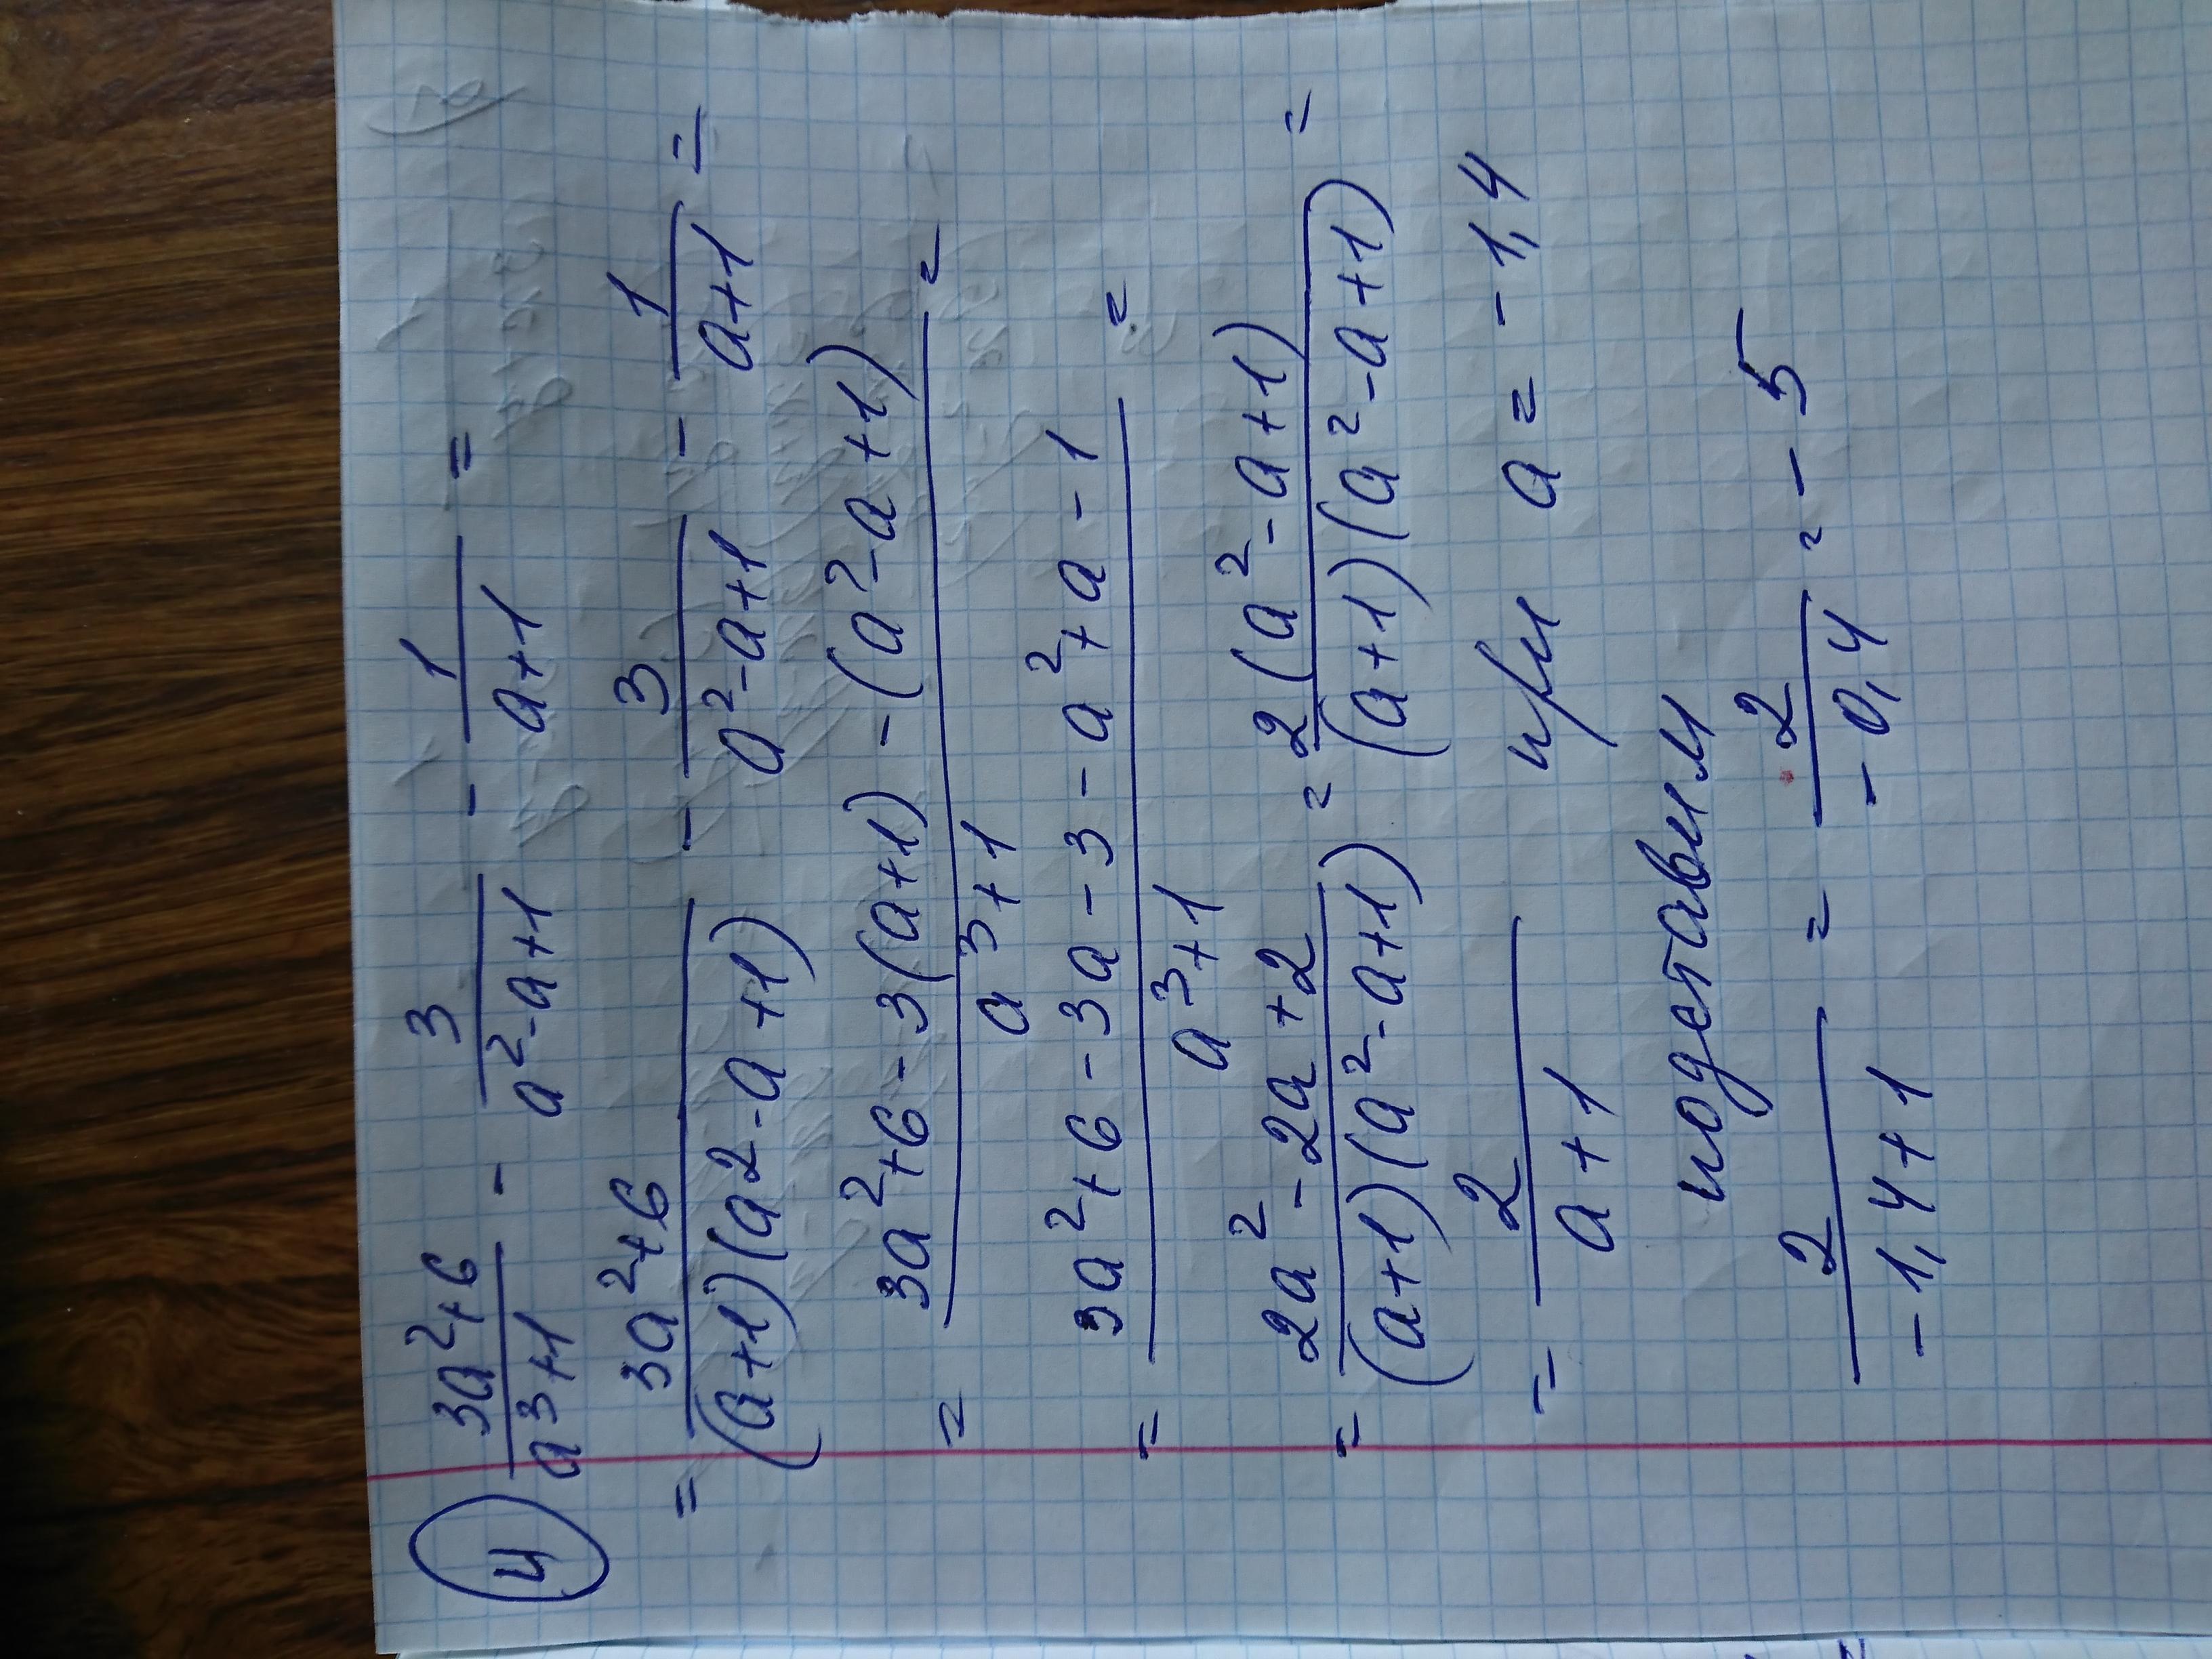 4 (3a²+6)/(a³+1) - 3/(a²-a+1) - 1/(a+1) =
= (3a²+6)/((a+1)(a2-a+1)) - 3/(a²-a+1) - 1/(a+1) =
= (3a²+6-3(a+1)-(a²-a+1))/(a³+1) =
= (3a²+6-3a-3-a²+a-1)/(a³+1) =
= (2a²-2a+2)/((a+1)(a²-a+1)) = 2(a²-a+1)/((a+1)(a²-a+1)) =
= 2/(a+1) при a = -1,4
подставим
2/(-1,4+1) = 2/(-0,4) = -5